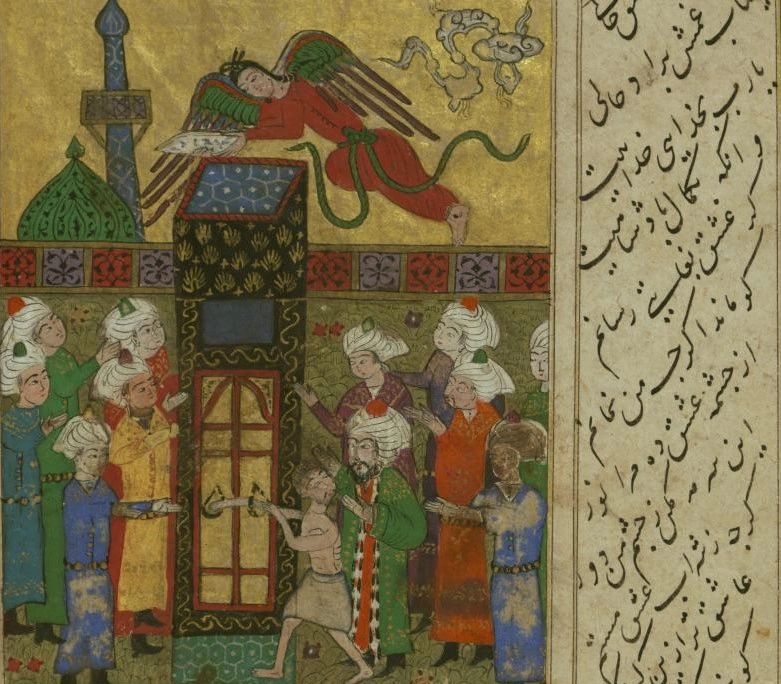 یارب بخدایی خداییت
وانگه بکمال پادشاییت
کز عشق بغایتی رسانم
کو ماند اگرچه من نمانم
از چشمه عشق ده مرا نور
این سرمه مکن ز چشم من دور
گرچه ز شراب عشق مستم
عاشق تر ازین